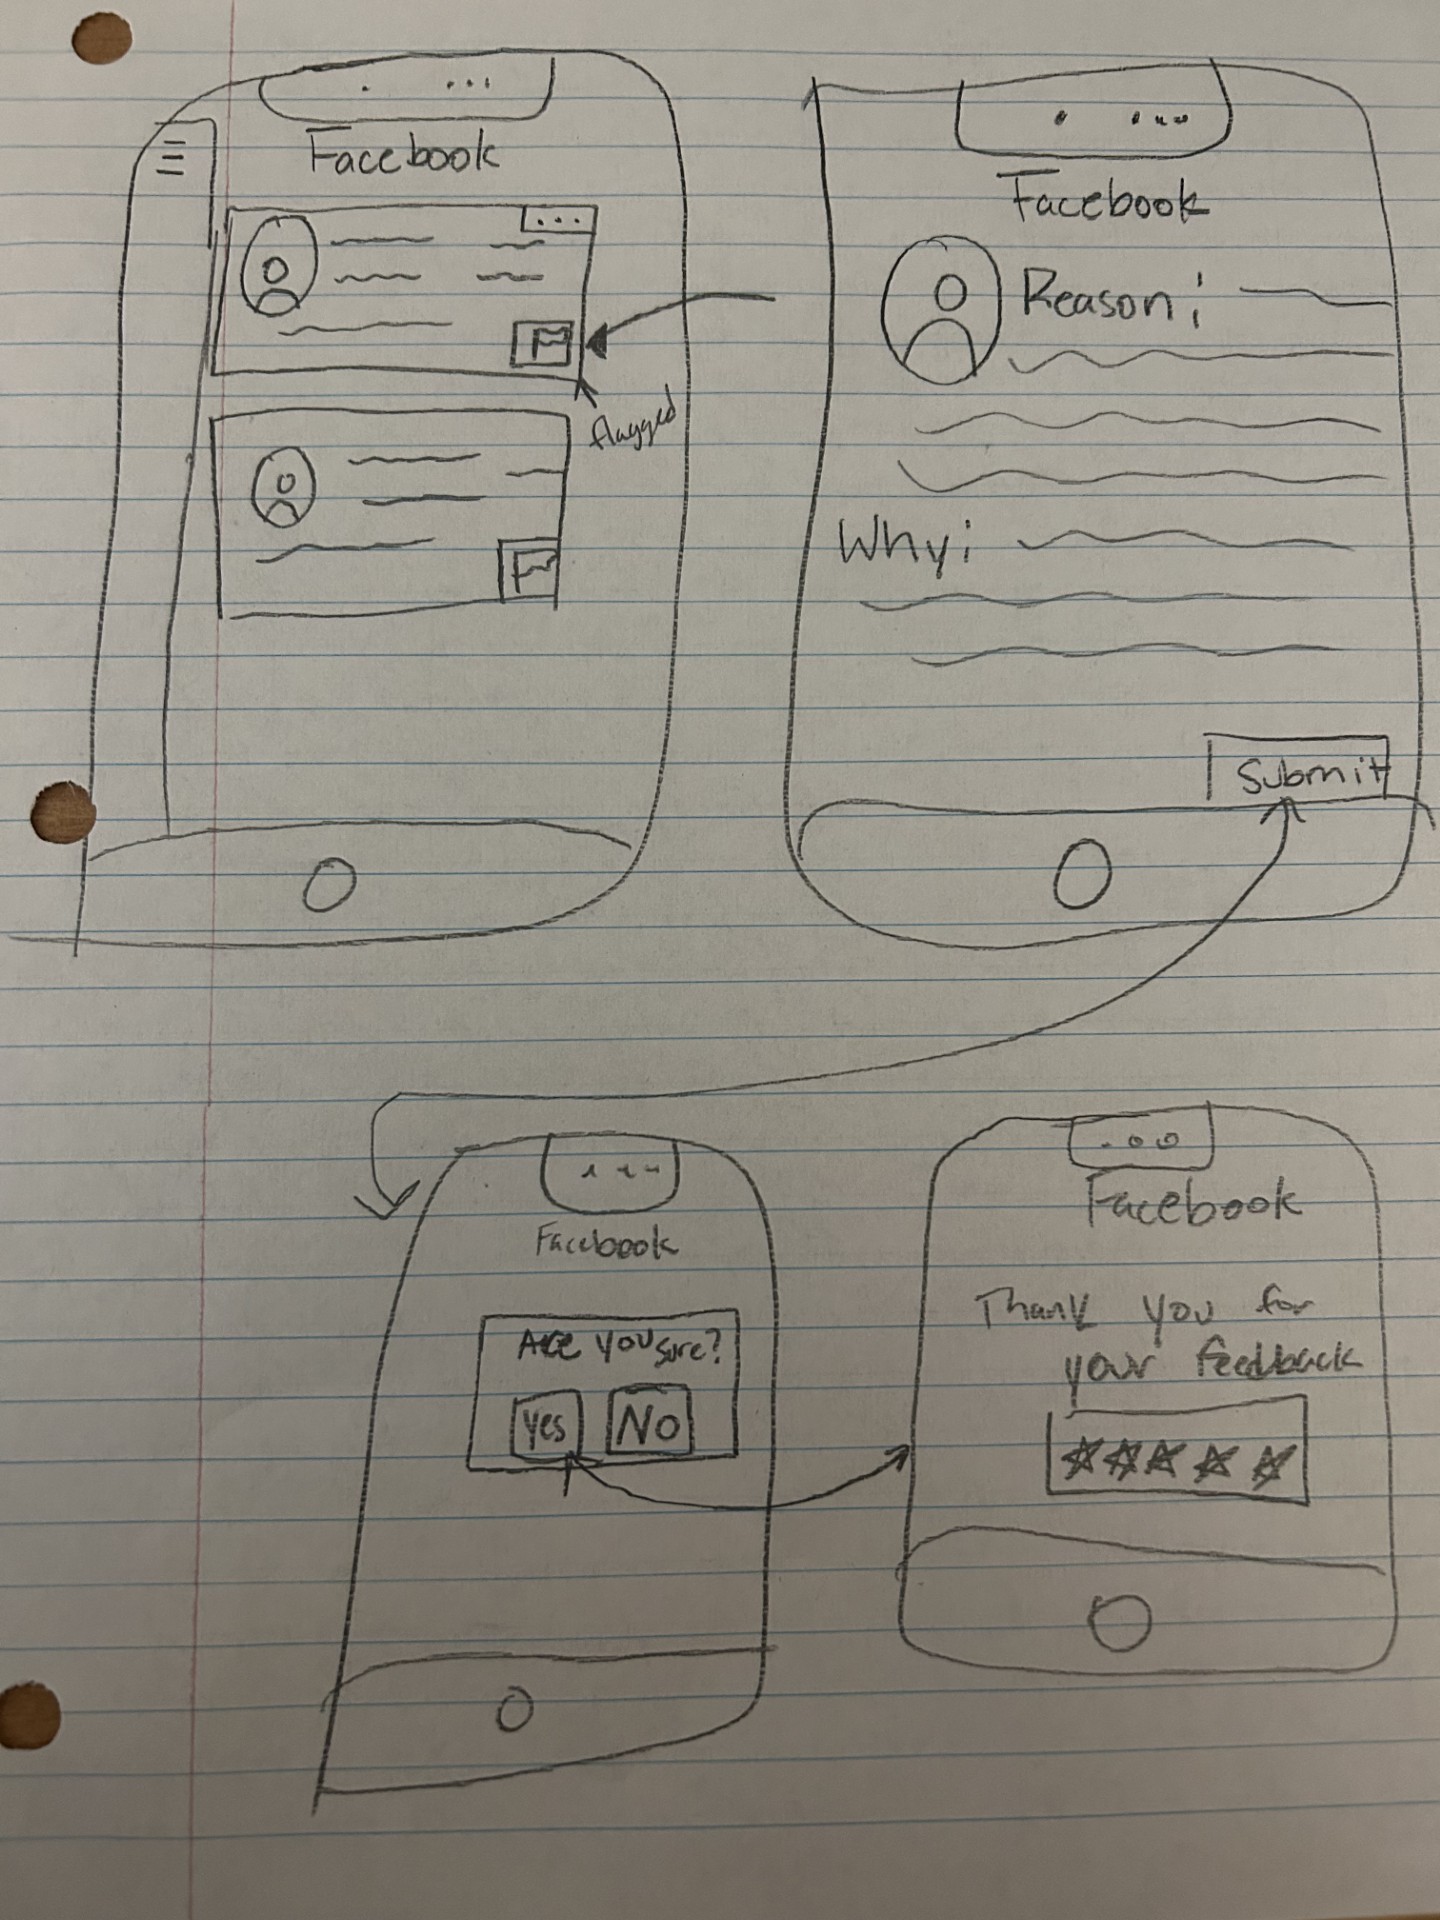 Facebook
flagged
Facebook
Reason:
Why:
Submit
Facebook
Are you sure?
Yes
No
Facebook
Thank you for
your feedback